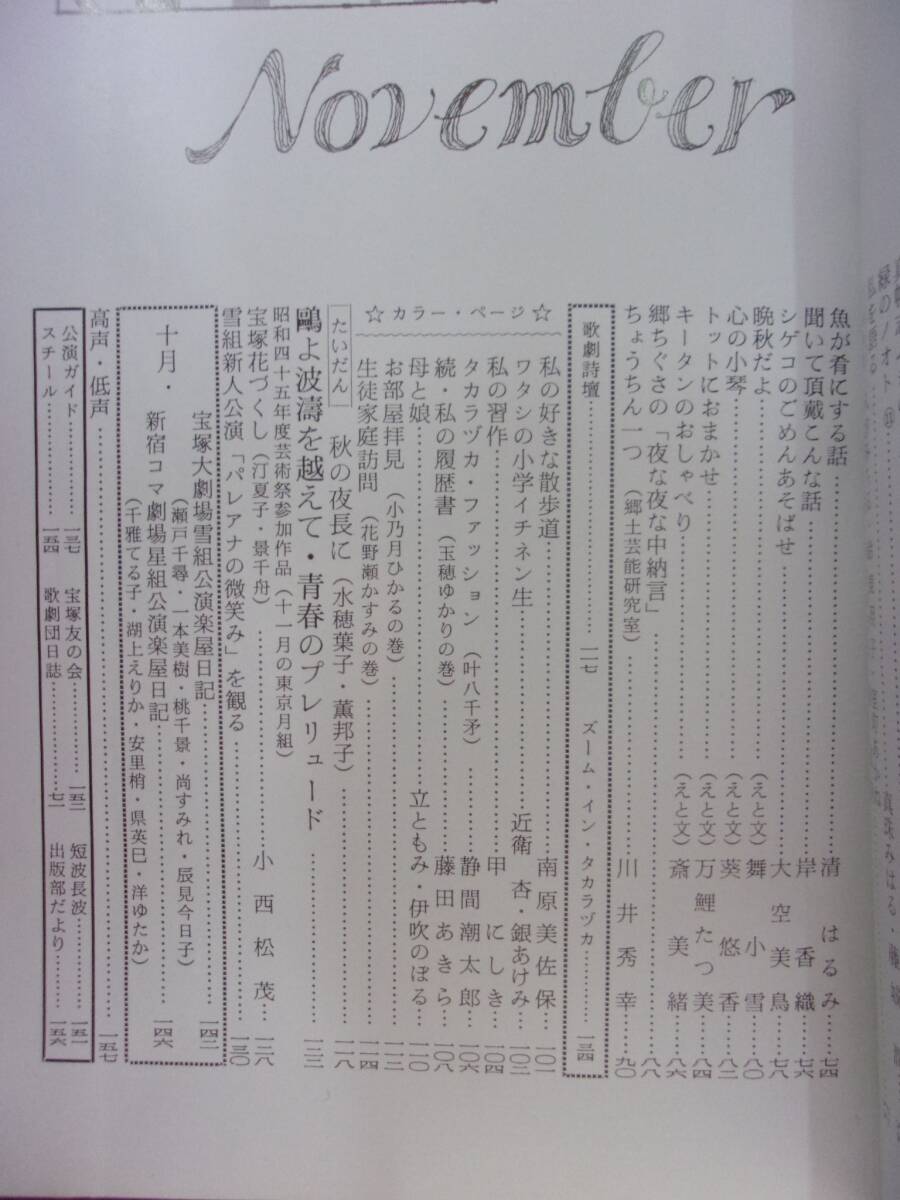 November
魚が肴にする話……清はるみ……七四
聞いて頂戴こんな話……岸香織……七六
シゲコのごめんあそばせ……大空美鳥……七八
晩秋だよ……(えと文)舞小雪……八〇
心の小琴……(えと文)葵悠香……八二
トットにおまかせ……(えと文)万鯉たつ美……八四
キータンのおしゃべり……(えと文)斎美緒……八六
郷ちぐさの「夜な夜な中納言」……八八
ちょうちん一つ(郷土芸能研究室)……川井秀幸……九〇
歌劇詩壇……一一七
ズーム・イン・タカラヅカ……一三四
☆カラー・ページ☆
私の好きな散歩道……南原美佐保……一〇一
ワタシの小学イチネン生……近衛杏・銀あけみ……一〇二
私の習作……甲にしき……一〇四
タカラヅカ・ファッション(叶八千矛)……静間潮太郎……一〇六
続・私の履歴書(玉穂ゆかりの巻)……藤田あきら……一〇八
母と娘……立ともみ・伊吹のぼる……一一〇
お部屋拝見(小乃月ひかるの巻)……一一二
生徒家庭訪問(花野瀬かすみの巻)……一一四
たいだん 秋の夜長に(水穂葉子・薫邦子)……一一八
鷗よ波濤を越えて・青春のプレリュード……一二二
昭和四十五年度芸術祭参加作品(十一月の東京月組)
宝塚花づくし(汀夏子・景千舟)……小西松茂……一二八
雪組新人公演「パレアナの微笑み」を観る……一三〇
十月・
宝塚大劇場雪組公演楽屋日記……一四二
(瀬戸千尋・一本美樹・桃千景・尚すみれ・辰見今日子)
新宿コマ劇場星組公演楽屋日記……一四六
(千雅てる子・湖上えりか・安里梢・県英巳・洋ゆたか)
高声・低声……一五七
公演ガイド……一三七
宝塚友の会……一五二
短波長波……一五一
スチール……一五四
歌劇団日誌……七一
出版部だより……一五六